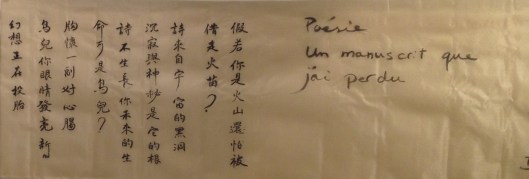 假若你是火山還怕被
借走火苗？
詩來自宇宙的黑洞
沉寂與神秘是它的根
詩不生長你未來的生
命可是鳥兒？
胸懷一副好心腸
鳥兒你眼睛發亮新日
幻想正在投胎
Poésie
Un manuscrit que
j'ai perdu